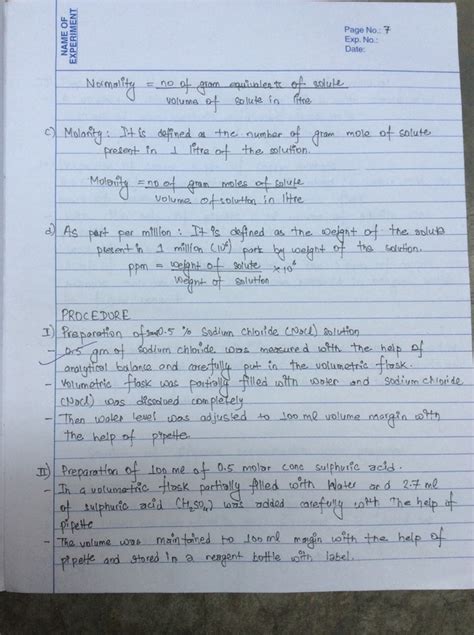 NAME OF EXPERIMENT
Page No.: 7
Exp. No.:
Date:
Normality = no of gram equivalents of solute
volume of solute in litre
c) Molarity : It is defined as the number of gram mole of solute
present in 1 litre of the solution.
Molarity = no of gram moles of solute
volume of solution in litre
d) As part per million : It is defined as the weight of the solute
present in 1 million (10⁶) part by weight of the solution.
ppm = weight of solute × 10⁶
weight of solution
PROCEDURE
I) Preparation of 0.5 % Sodium Chloride (NaCl) solution
- 0.5 gm of sodium chloride was measured with the help of
analytical balance and carefully put in the volumetric flask.
- Volumetric flask was partially filled with water and sodium chloride
(NaCl) was dissolved completely
- Then water level was adjusted to 100 ml volume margin with
the help of pipette.
II) Preparation of 100 ml of 0.5 molar conc sulphuric acid.
- In a volumetric flask partially filled with water and 2.7 ml
of sulphuric acid (H₂SO₄) was added carefully with the help of
pipette
- The volume was maintained to 100 ml margin with the help of
pipette and stored in a reagent bottle with label.